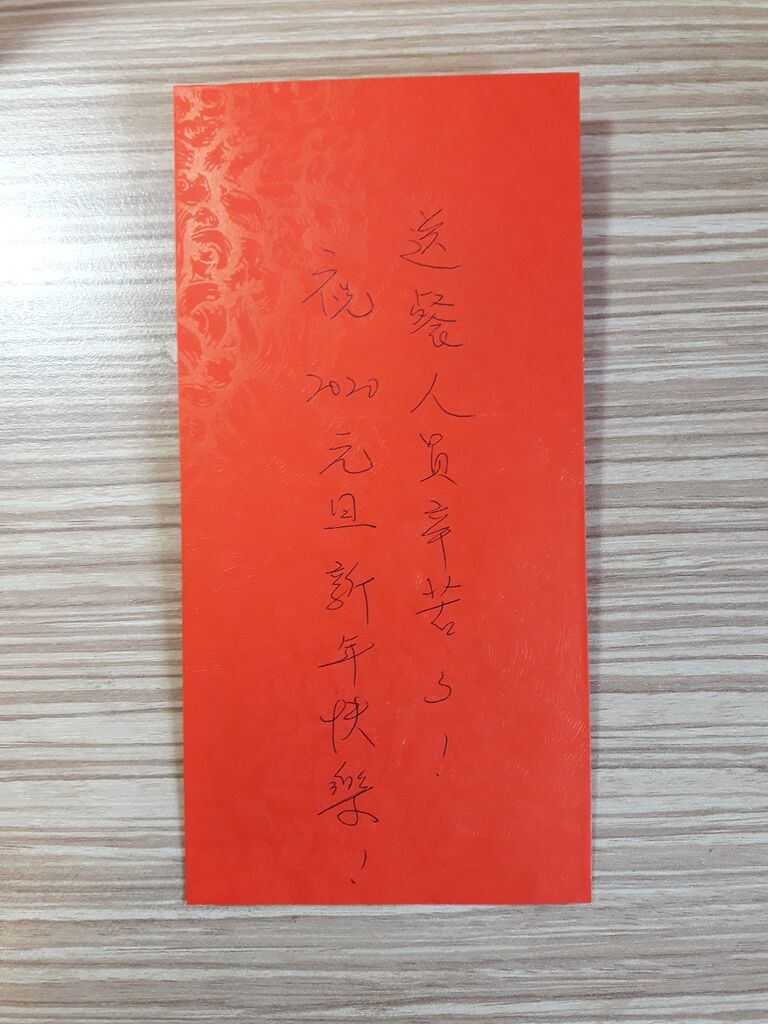 送餐人員辛苦了！
祝2020元旦新年快樂！